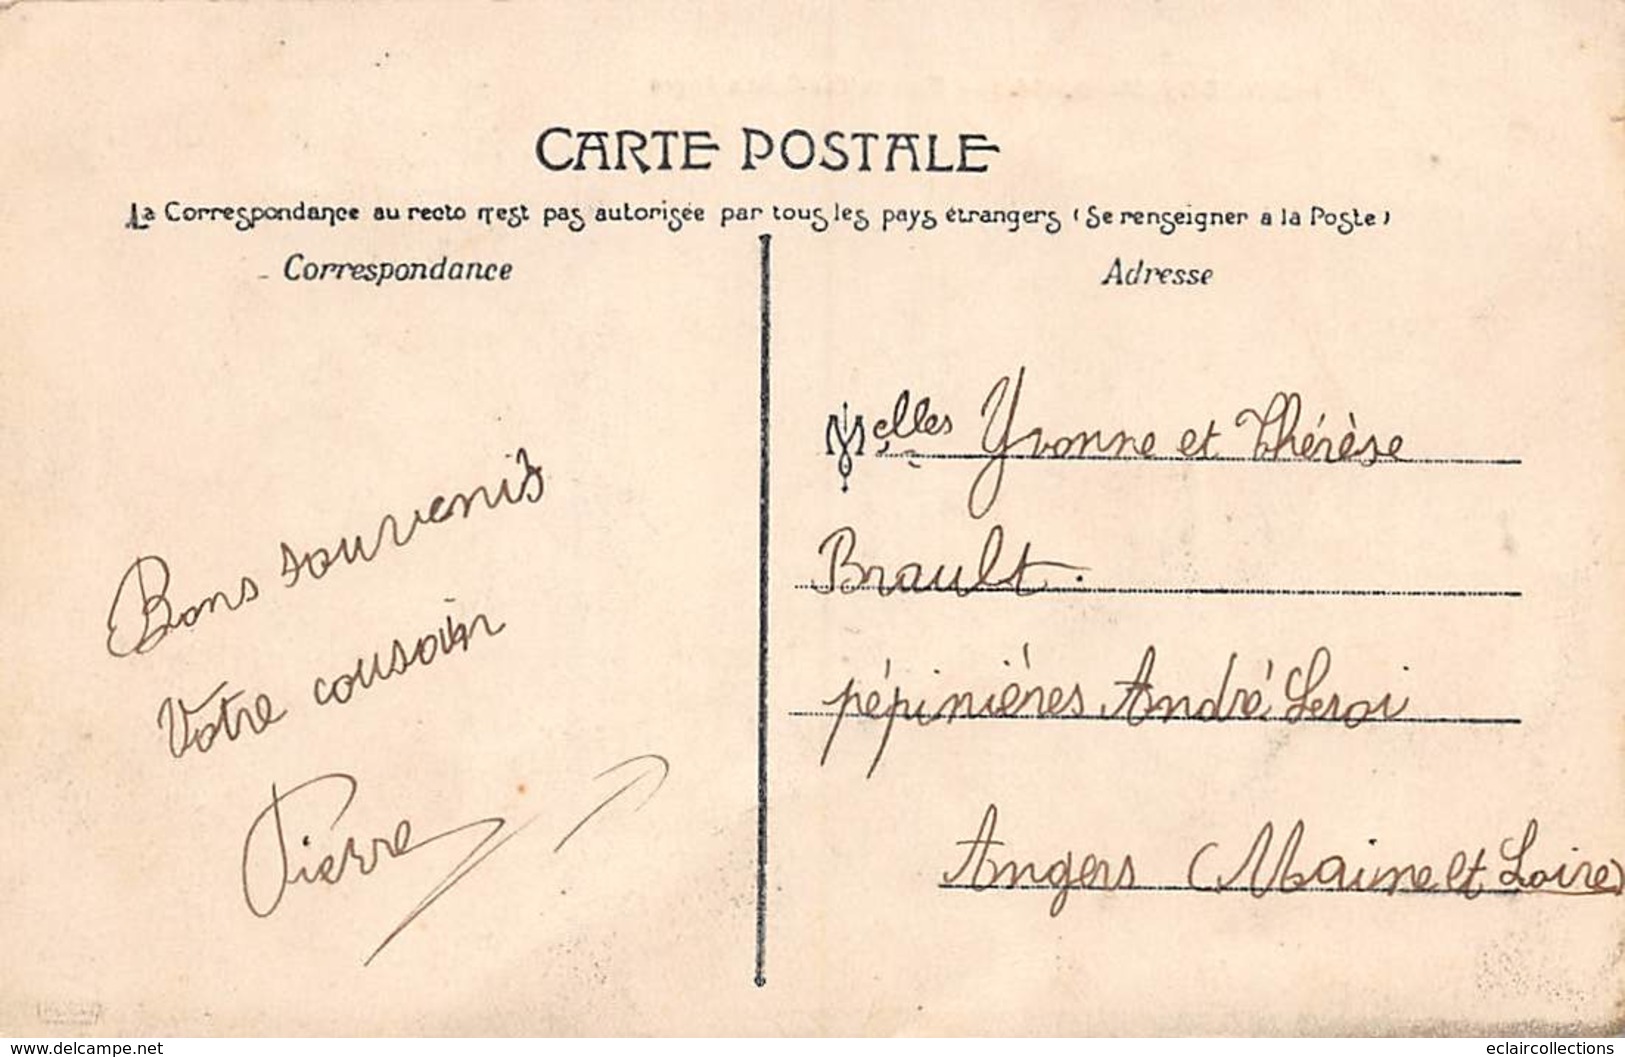 CARTE POSTALE
La Correspondance au recto n'est pas autorisée par tous les pays étrangers (Se renseigner a la Poste)
Correspondance
Bons souvenirs
Votre cousin
Pierre
Adresse
Melles Yvonne et Thérèse
Brault.
pépinières André Leroi
Angers (Maine et Loire)
www.delcampe.net
eclaircollections